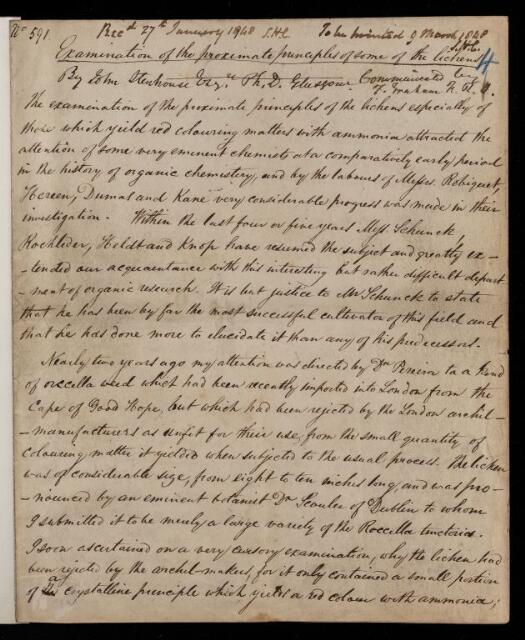 No 591. Recd 27th January 1848 S.H.C. To be printed 9 March, 1848
S.H.C.
Examination of the proximate principles of some of the lichens
4
By John Stenhouse Esqre Ph. D. Glasgow. Communicated by
T. Graham
The examination of the proximate principles of the lichens especially of
those which yield red colouring matters with ammonia attracted the
attention of some very eminent chemists at a comparatively early period
in the history of organic chemistry, and by the labours of Messrs. Robiquet,
Heeren, Dumas and Kane very considerable progress was made in their
investigation. Within the last four or five years Messrs Schunck,
Rochleder, Heldt and Knop have resumed the subject and greatly ex-
-tended our acquaintance with this interesting but rather difficult depart
-ment of organic research. It is but justice to Mr Schunck to state
that he has been by far the most successful cultivator of this field and
that he has done more to elucidate it than any of his predecessors.
Nearly two years ago my attention was directed by Dr Pereira to a kind
of orcella weed which had been recently imported into London from the
Cape of Good Hope, but which had been rejected by the London archil-
-manufacturers as unfit for their use, from the small quantity of
colouring matter it yielded when subjected to the usual process. The lichen
was of considerable size, from eight to ten inches long, and was pro-
-nounced by an eminent botanist Dr Scouler of Dublin to whom
I submitted it to be merely a large variety of the Roccella tinctoria.
I soon ascertained on a very cursory examination, why the lichen had
been rejected by the archil-makers, for it only contained a small portion
of a crystalline principle which yields a red colour with ammonia;